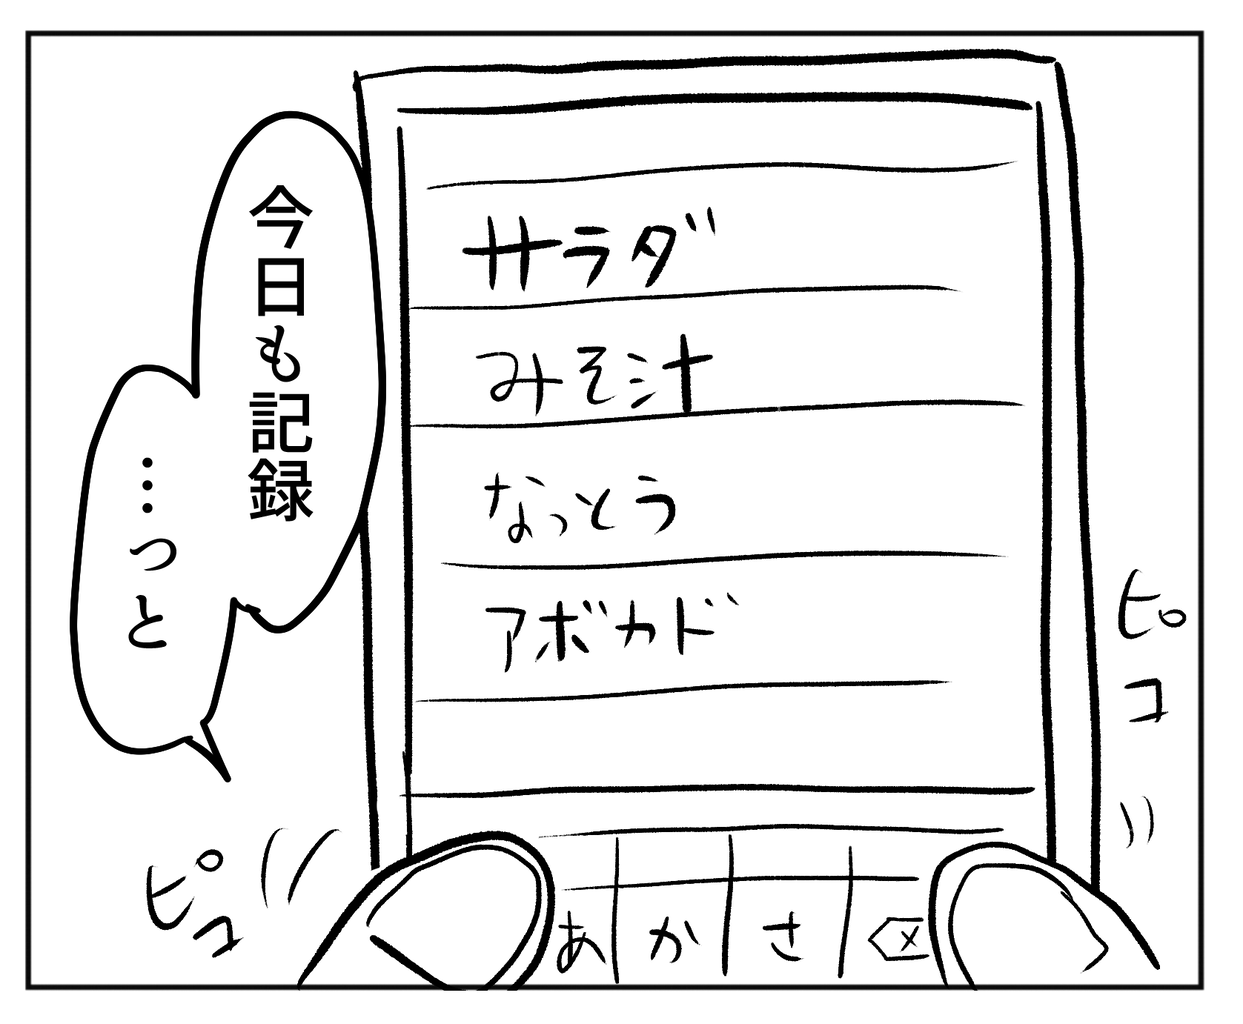 今日も記録
…っと
サラダ
みそ汁
なっとう
アボカド
ピコ
ピコ
あ か さ